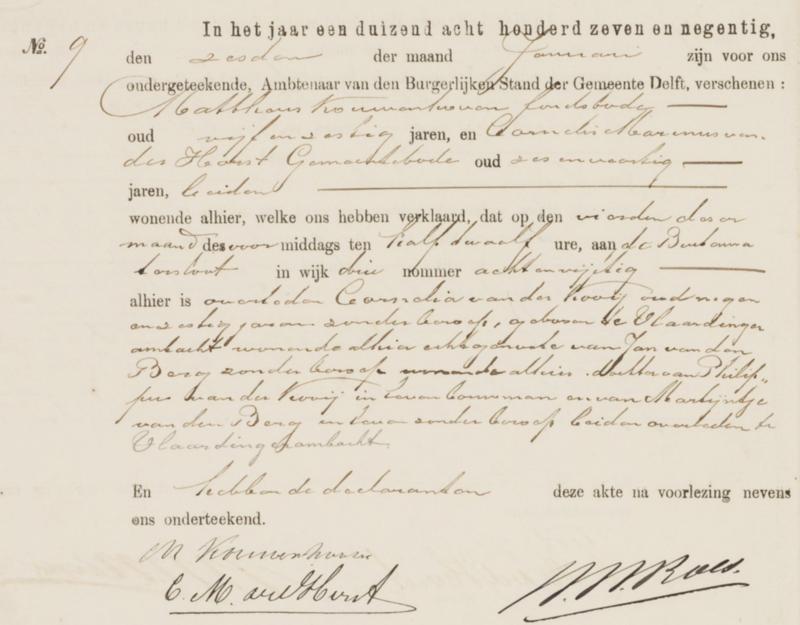 In het jaar een duizend acht honderd zeven en negentig,
No. 9 den zesden der maand Januari zijn voor ons
ondergeteekende, Ambtenaar van den Burgerlijken Stand der Gemeente Delft, verschenen :
Mattheus Kouwenhoven fondsbode
oud vijf en zestig jaren, en Cornelis Marinus van
der Horst Gemeentebode oud zes en veertig
jaren, beiden
wonende alhier, welke ons hebben verklaard, dat op den vierden dezer
maand des voor middags ten half twaalf ure, aan de Buitenwa
tersloot in wijk drie nommer acht en vijftig
alhier is overleden Cornelia van der Kooij oud negen
en zestig jaren zonder beroep, geboren te Vlaardinger
ambacht wonende alhier echtgenoote van Jan van den
Berg zonder beroep wonende alhier dochter van Philip„
pus van der Kooij in leven bouwman en van Martijntje
van den Berg in leven zonder beroep beiden overleden te
Vlaardingerambacht.
En hebben de declaranten deze akte na voorlezing nevens
ons onderteekend.
M Kouwenhoven
C. M. vd Horst